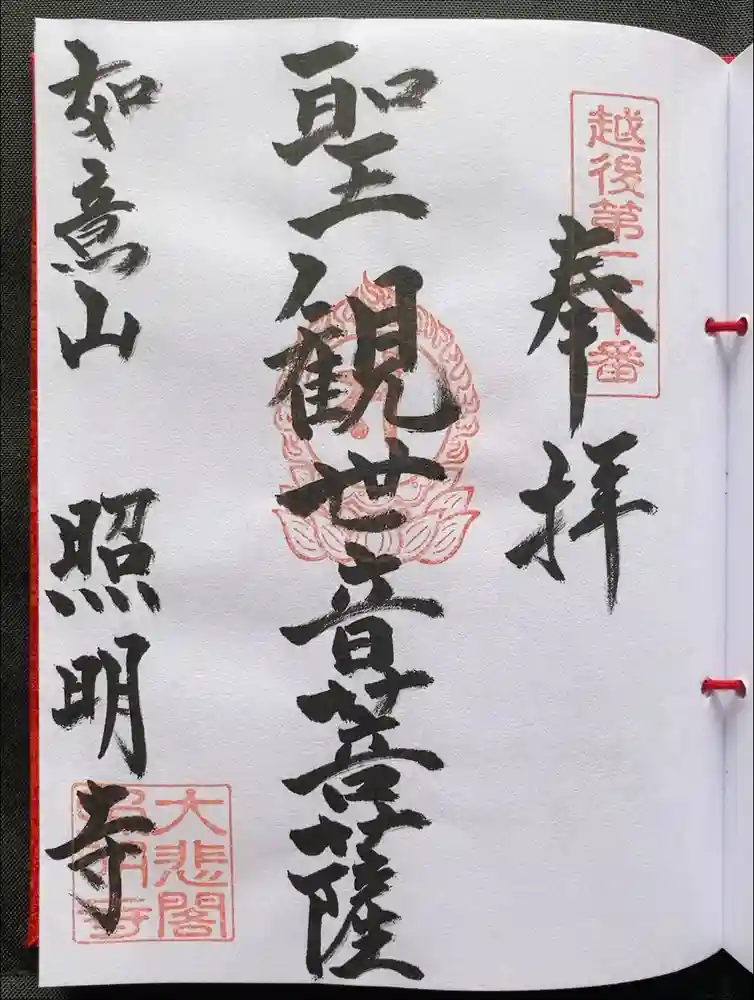 越後第二十番
奉拝
聖観世音菩薩
如意山 照明寺
大悲閣
照明寺